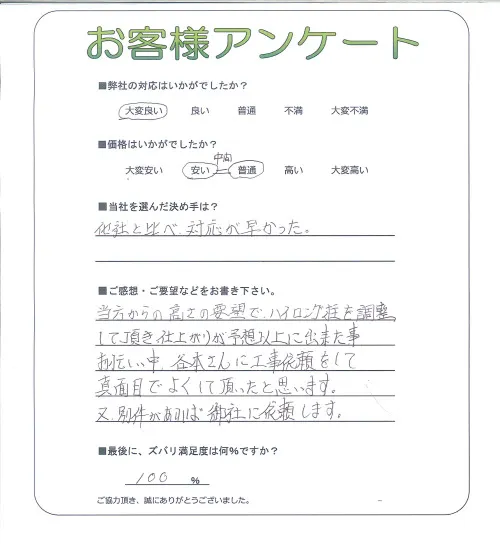 お客様アンケート
■弊社の対応はいかがでしたか?
大変良い 良い 普通 不満 大変不満
■価格はいかがでしたか?
中間
大変安い 安い 普通 高い 大変高い
■当社を選んだ決め手は?
他社と比べ、対応が早かった。
■ご感想・ご要望などをお書き下さい。
当方からの高さの要望で、ハイロング柱を調整
して頂き仕上がりが予想以上に出来た事
お忙しい中、谷本さんに工事依頼をして
真面目でよくして頂ったと思います。
又、別件があれば御社に依頼します。
■最後に、ズバリ満足度は何%ですか?
100 %
ご協力頂き、誠にありがとうございました。